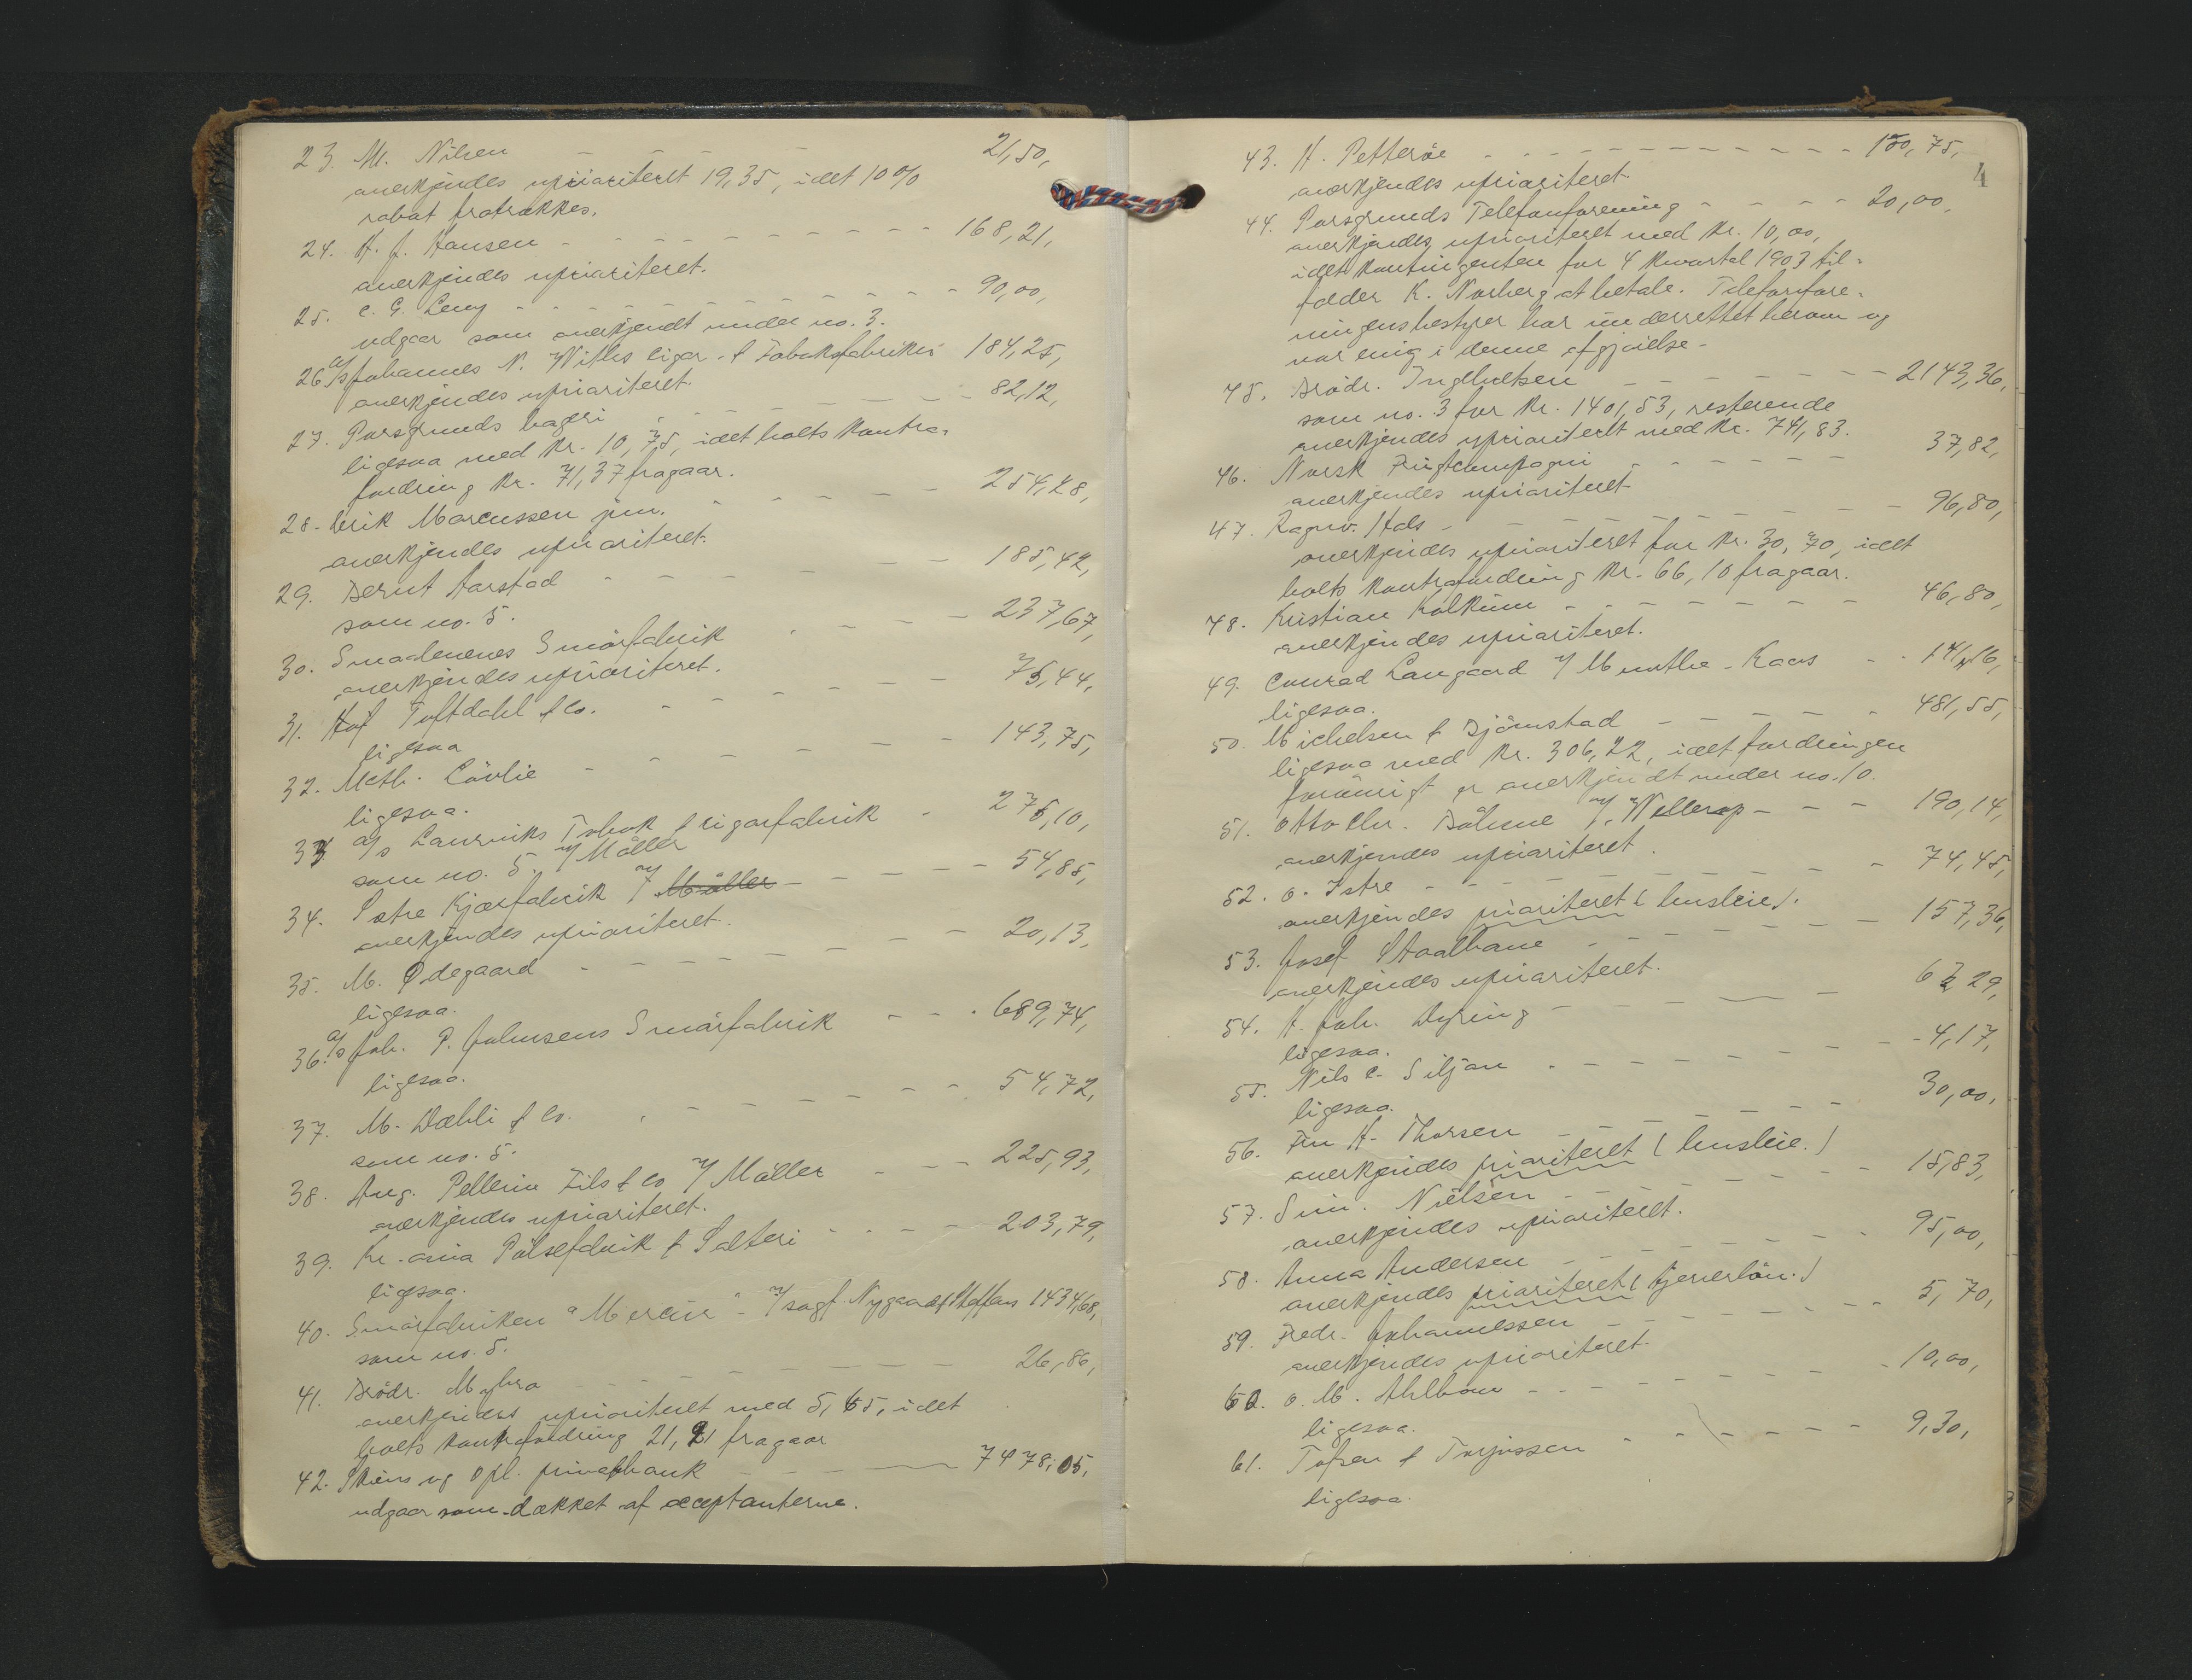 23. M. Nilsen - - - - 21,50,
anerkjendes uprioriteret 19,35, idet 10%
rabat fratrækkes.
24. H. J. Hansen - - - - - - - - - - 168,21,
anerkjendes uprioriteret.
25. C. G. Leny - - - - - - - - - - 90,00,
udgaar som anerkjendt under no. 3.
26 A/s Johannes N. Withs Cigar- & Tobaksfabriker 184,25,
anerkjendes uprioriteret.
27. Porsgrunds bageri - - - - - - 82,12,
ligesaa med Kr. 10,75, idet bolts kontra-
fordring Kr. 71,37 fragaar.
28. Erik Marcussen jun. - - - - 254,28,
anerkjendes uprioriteret.
29. Bernt Aarstad - - - - - 185,42,
som no. 5.
30. Smaalenenes Smörfabrik - - - - 237,67,
anerkjendes uprioriteret.
31. Hof Toftdahl & Co. - - - - - 75,44,
ligesaa
32. Meth. Lövlie - - - - - - 143,75,
ligesaa.
33 A/s Laurviks Tobak & cigarfabrik - 275,10,
som no. 5. v/ Möller
34. Sætre Kjæxfabrik v/ Möller - - - - - 54,85,
anerkjendes uprioriteret.
35. M. Ødegaard - - - - - - - 20,13,
ligesaa.
36. A/s Joh. P. Johnsens Smörfabrik - - . 689,74,
ligesaa.
37. M. Dæhli & Co. - - - - - - - 54,72,
som no. 5.
38. Aug. Pellerin Fils & Co v/ Möller - - - 225,93,
anerkjendes uprioriteret.
39. Kr.ania Pölsefabrik & Salteri - - - - 203,79,
ligesaa.
40. Smörfabriken "Mercur" - v/ sagf. Nygaard & Steffens 1434,68,
som no. 5.
41. Brödr. Myhra - - - - - - 26,86,
anerkjendes uprioriteret med 5,65, idet
bolts kontrafordring 21,21 fragaar
42. Skiens og Opl. privatbank - - - 7478,05,
udgaar som dækket af acceptanterne.
4
43. H. Petterøe - - - - - - - - - - - - 150,75,
anerkjendes uprioriteret.
44. Porsgrunds Telefonforening - - - - 20,00,
anerkjendes uprioriteret med Kr. 10,00,
idet kontingenten for 4 kvartal 1903 til-
falder K. Norberg at betale. Telefonfore-
ningens bestyrer har underrettet herom og
var enig i denne afgjörelse -
45. Brödr. Ingebretsen - - - - - - - 2143,36,
som no. 3 for Kr. 1401,53, resterende
anerkjendes uprioriteret med Kr. 741,83.
46. Norsk Frugtcompagni - - - - - - 37,82,
anerkjendes uprioriteret.
47. Ragnv. Hals - - - - - - - - - 96,80,
anerkjendes uprioriteret for Kr. 30,70, idet
bolts kontrafordring Kr. 66,10 fragaar.
48. Kristian Kolkinn - - - - - - - 46,80,
anerkjendes uprioriteret.
49. Conrad Langaard v/ Munthe-Kaas - - 141,16,
ligesaa.
50. Michelsen & Björnstad - - - - - - 481,55,
ligesaa med Kr. 306,22, idet fordringen
forövrigt er anerkjendt under no. 10.
51. Otto Chr. Böhme v/ Wellerop - - - 190,14,
anerkjendes uprioriteret.
52. O. Istre - - - - - - - - - 74,45,
anerkjendes prioriteret (husleie).
53. Josef Staalhane - - - - - - - 157,36,
anerkjendes uprioriteret.
54. H. Joh. Dyring - - - - - - 62 29,
ligesaa.
55. Nils C. Siljan - - - - - - - - 4,17,
ligesaa.
56. Fru H. Thorsen - - - - - - - 30,00,
anerkjendes prioriteret (husleie.)
57. Sim. Nielsen - - - - - - - 15,83,
anerkjendes uprioriteret.
58. Anna Andersen - - - - - - - 95,00,
anerkjendes prioriteret (tjenerlön.)
59. Fredr. Johannessen - - - - - - 5,70,
anerkjendes uprioriteret.
60. O. M. Ahlbom - - - - - - - - 10,00,
ligesaa.
61. Tofsen & Torjussen - - - - - - 9,30,
ligesaa.